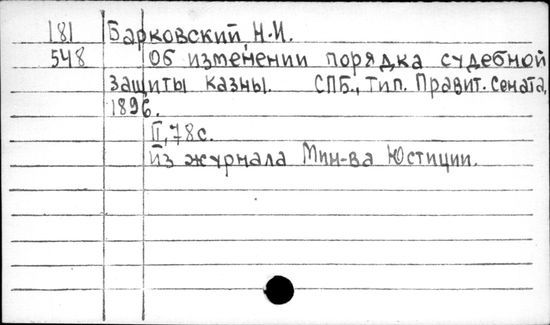 181 Барковский, Н.И.
548 Об изменении порядка судебной
защиты казны. СПБ., Тип. Правит. Сената,
1896.
II, 78 с.
Из журнала Мин-ва Юстиции.